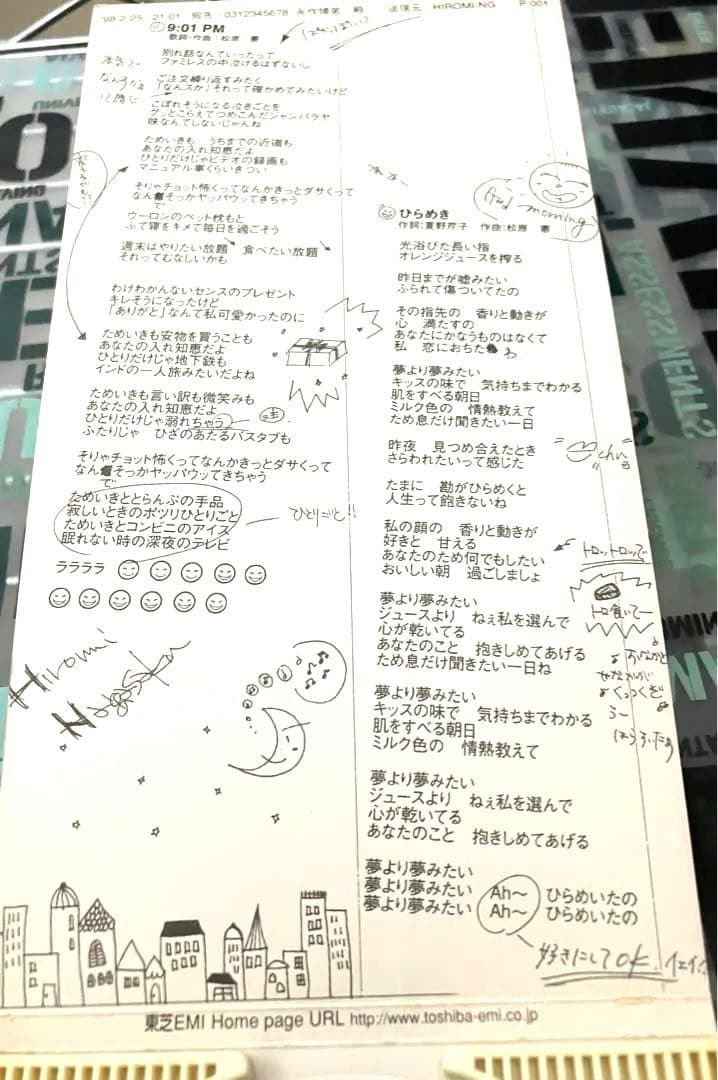 '98-2-25 21:01 宛先:0312345678 永作博美 殿 送信元 HIROMI-NG P.001
9:01 PM
歌詞・作曲:松原 憲
別れ話なんていったって
ファミレスの中泣けるはずないし
ご注文繰り返すみたく
「なんスか」それって確かめてみたいけど
こぼれそうになる泣きごとを
グッとこらえてつめこんだジャンバラヤ
味なんてしないじゃんね
ためいきも うちまでの近道も
あなたの入れ知恵だよ
ひとりだけじゃビデオの録画も
マニュアル車くらいきつい
そりゃチョット怖くってなんかきっとダサくって
なんでそっかヤッパウッてきちゃう
ウーロンのペット枕もと
ふて寝をキメて毎日を過ごそう
週末はやりたい放題 食べたい放題
それってむなしいかも
わけわかんないセンスのプレゼント
キレそうになったけど
「ありがと」なんて私可愛かったのに
ためいきも安物を買うことも
あなたの入れ知恵だよ
ひとりだけじゃ地下鉄も
インドの一人旅みたいだよね
ためいきも言い訳も微笑みも
あなたの入れ知恵だよ
ひとりだけじゃ溺れちゃう
ふたりじゃ ひざのあたるバスタブも
そりゃチョット怖くってなんかきっとダサくって
なんでそっかヤッパウッてきちゃう
ためいきととらんぷの手品
寂しいときのポツリひとりごと
ためいきとコンビニのアイス
眠れない時の深夜のテレビ
ひとりごと!!
ララララ
Hiromi
Nagasaku
Good morning
ひらめき
作詞:夏野芹子 作曲:松原 憲
光浴びた長い指
オレンジジュースを搾る
昨日までが嘘みたい
ふられて傷ついてたの
その指先の 香りと動きが
心 満たすの
あなたにかなうものはなくて
私 恋におちたわ
夢より夢みたい
キッスの味で 気持ちまでわかる
肌をすべる朝日
ミルク色の 情熱教えて
ため息だけ聞きたい一日
昨夜 見つめ合えたとき
さらわれたいって感じた
chu
たまに 勘がひらめくと
人生って飽きないね
私の顔の 香りと動きが
好きと 甘える
あなたのため何でもしたい
おいしい朝 過ごしましょ
トロットロッで
トロ食いてー
夢より夢みたい
ジュースより ねぇ私を選んで
心が乾いてる
あなたのこと 抱きしめてあげる
ため息だけ聞きたい一日ね
おなかと
せなかが
くっつくぞ
夢より夢みたい
キッスの味で 気持ちまでわかる
肌をすべる朝日
ミルク色の 情熱教えて
夢より夢みたい
ジュースより ねぇ私を選んで
心が乾いてる
あなたのこと 抱きしめてあげる
夢より夢みたい
夢より夢みたい Ah〜 ひらめいたの
夢より夢みたい Ah〜 ひらめいたの
好きにしてOK. イエイ
東芝EMI Home page URL http://www.toshiba-emi.co.jp